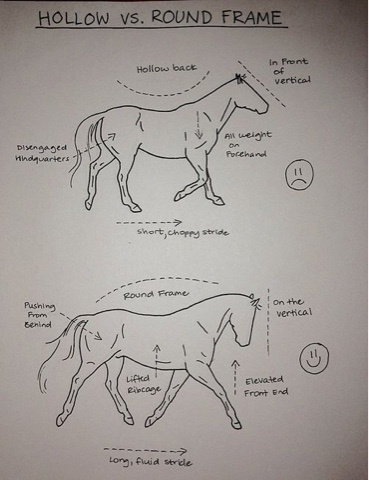 HOLLOW VS. ROUND FRAME
Hollow back
In Front
of
vertical
Disengaged
Hindquarters
All weight
on
Forehand
short, choppy stride
Pushing
From
Behind
Round Frame
On the
vertical
Lifted
Ribcage
Elevated
Front End
Long, fluid stride